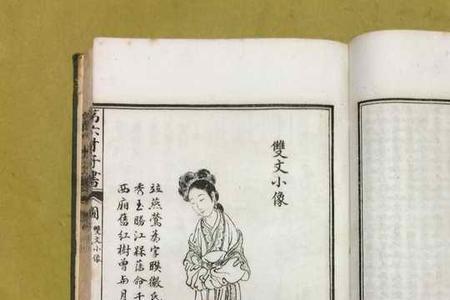 雙文小像
竝燕鶯為字聯徽氏
秀玉勝江梅薄命千
西廂舊紅樹曾與月
第六才子書
圖
雙文小像